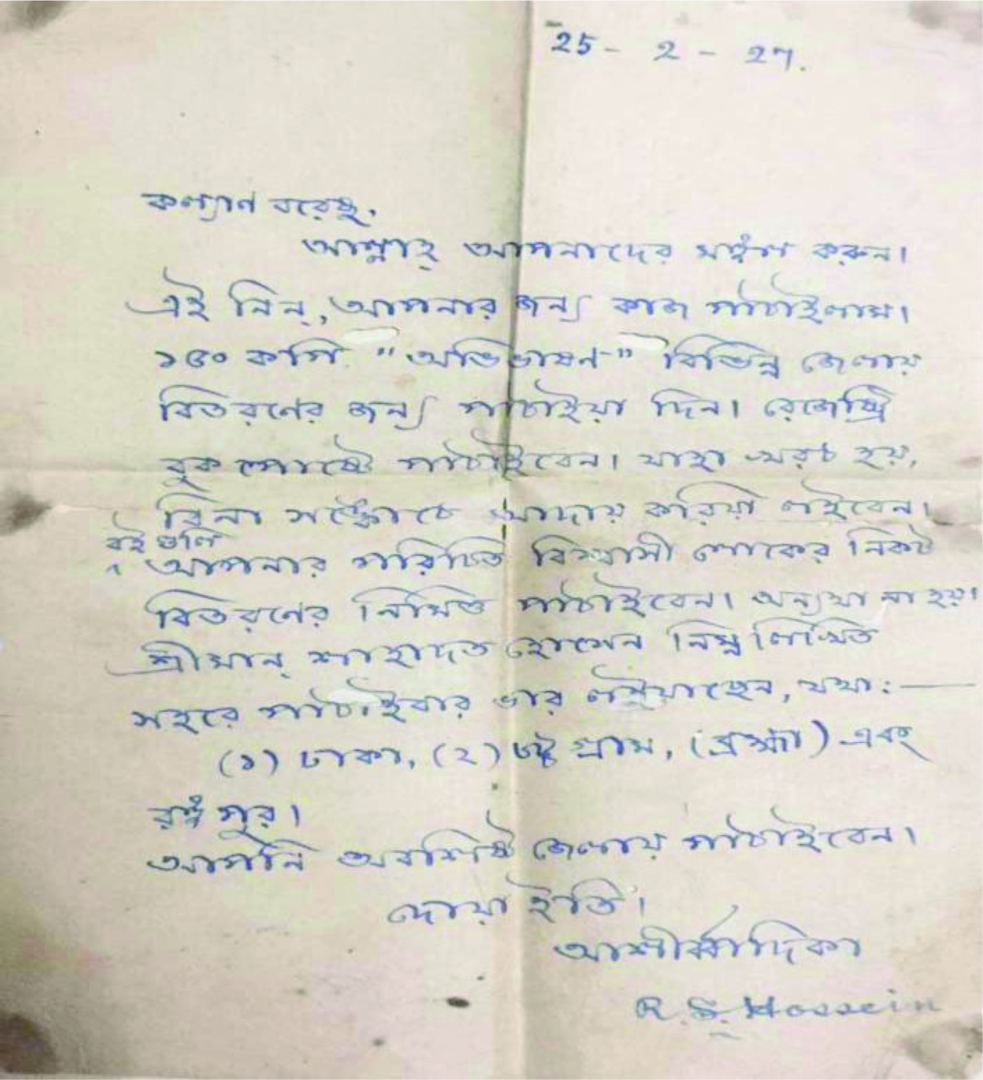 25 - 2 - 27.
কল্যাণ বরেষু,
আল্লাহ্ আপনাদের মঙ্গল করুন।
এই নিন্, আপনার জন্য কাজ পাঠাইলাম।
১৫০ কপি "অভিভাষণ" বিভিন্ন জেলায়
বিতরণের জন্য পাঠাইয়া দিন। রেজেষ্ট্রি
বুক পোষ্টে পাঠাইবেন। যাহা খরচ হয়,
বিনা সঙ্কোচে আদায় করিয়া লইবেন।
বই গুলি
^ আপনার পরিচিত বিশ্বাসী লোকের নিকট
বিতরণের নিমিত্ত পাঠাইবেন। অন্যথা না হয়।
শ্রীমান্ শাহাদত হোসেন নিম্ন লিখিত
সহরে পাঠাইবার ভার লইয়াছেন, যথা : —
(১) ঢাকা, (২) চট্টগ্রাম, (ব্রহ্মা) এবং
রঙ্গপুর।
আপনি অবশিষ্ট জেলায় পাঠাইবেন।
দোয়া ইতি।
আশীর্ব্বাদিকা
R. S. Hossein